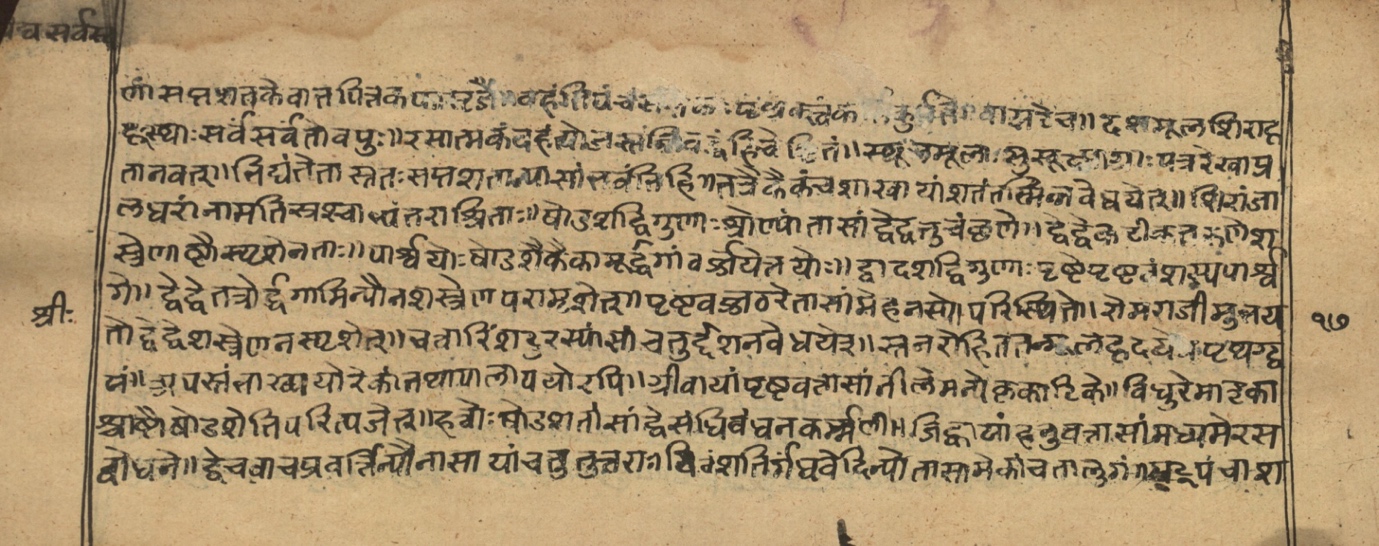 च सर्वस
णां सप्तशतकैवात्तपित्तक वहंति पंच पृथक् वायश्चैव॥ दशमूलशिराहृ
हृस्थाः सर्व सर्वतोवपुः॥ रसात्मकं वहंत्योजस्तन्निबद्धं हि चेष्टितं॥ स्थूलमूलाः सुसूक्ष्माग्राः पत्ररेखाप्र
तानवत्॥ भिद्यंतेतास्ततः सप्तशतान्यासां भवंति हि॥ तत्रैकैकं च शाखायां शतं तस्मिन्न वेधयेत्॥ शिरां जा
लधरां नाम तिस्रश्चाभ्यंतराश्रिताः॥ षोडशद्विगुणाः श्रोण्यां तासां द्वेद्वे तु वंक्षणे॥ द्वेद्वे कटीकतरुणे श
स्त्रेणाष्टौ स्पृशेन्नताः॥ पार्श्वयोः षोडशैकैकामूर्द्धगां वर्ज्जयेत्तयोः॥ द्वादशद्विगुणाः पृष्टे पृष्टवंशस्य पार्श्व
गे॥ द्वेद्वे तत्रोर्द्धगामिन्यौ न शस्त्रेण परामृशेत्॥ पृष्टवज्जठरे तासां मेहनस्यो परिस्थिते॥ रोमराजीमुभय
तो द्वेद्वे शस्त्रेण न स्पृशेत्॥ चत्वारिंशदुरस्यासां चतुर्द्दश न वेधयेत्॥ स्तनरोहिततन्मूले हृदये पृथग्द्व
यं॥ अपस्तंभाख्ययोरेकां तथापालापयोरपि॥ ग्रीवायां पृष्टवत्तासां नीले मन्ये कृकाटिके॥ विधुरे मातृका
श्चाष्टौ षोडशेति परित्यजेत्॥ हन्वोः षोडश तासां द्वे संधिबंधनकर्म्मणी॥ जिह्वायां हनुवत्तासां मध्यमे रस
बोधने॥ द्वे च वाचप्रवर्त्तिन्यौ नासायां चतुरुत्तरा॥ विंशतिर्गंधवेदिन्यौ तासामेकां च तालुगां॥ षट्पंचाश
श्रीः
१७